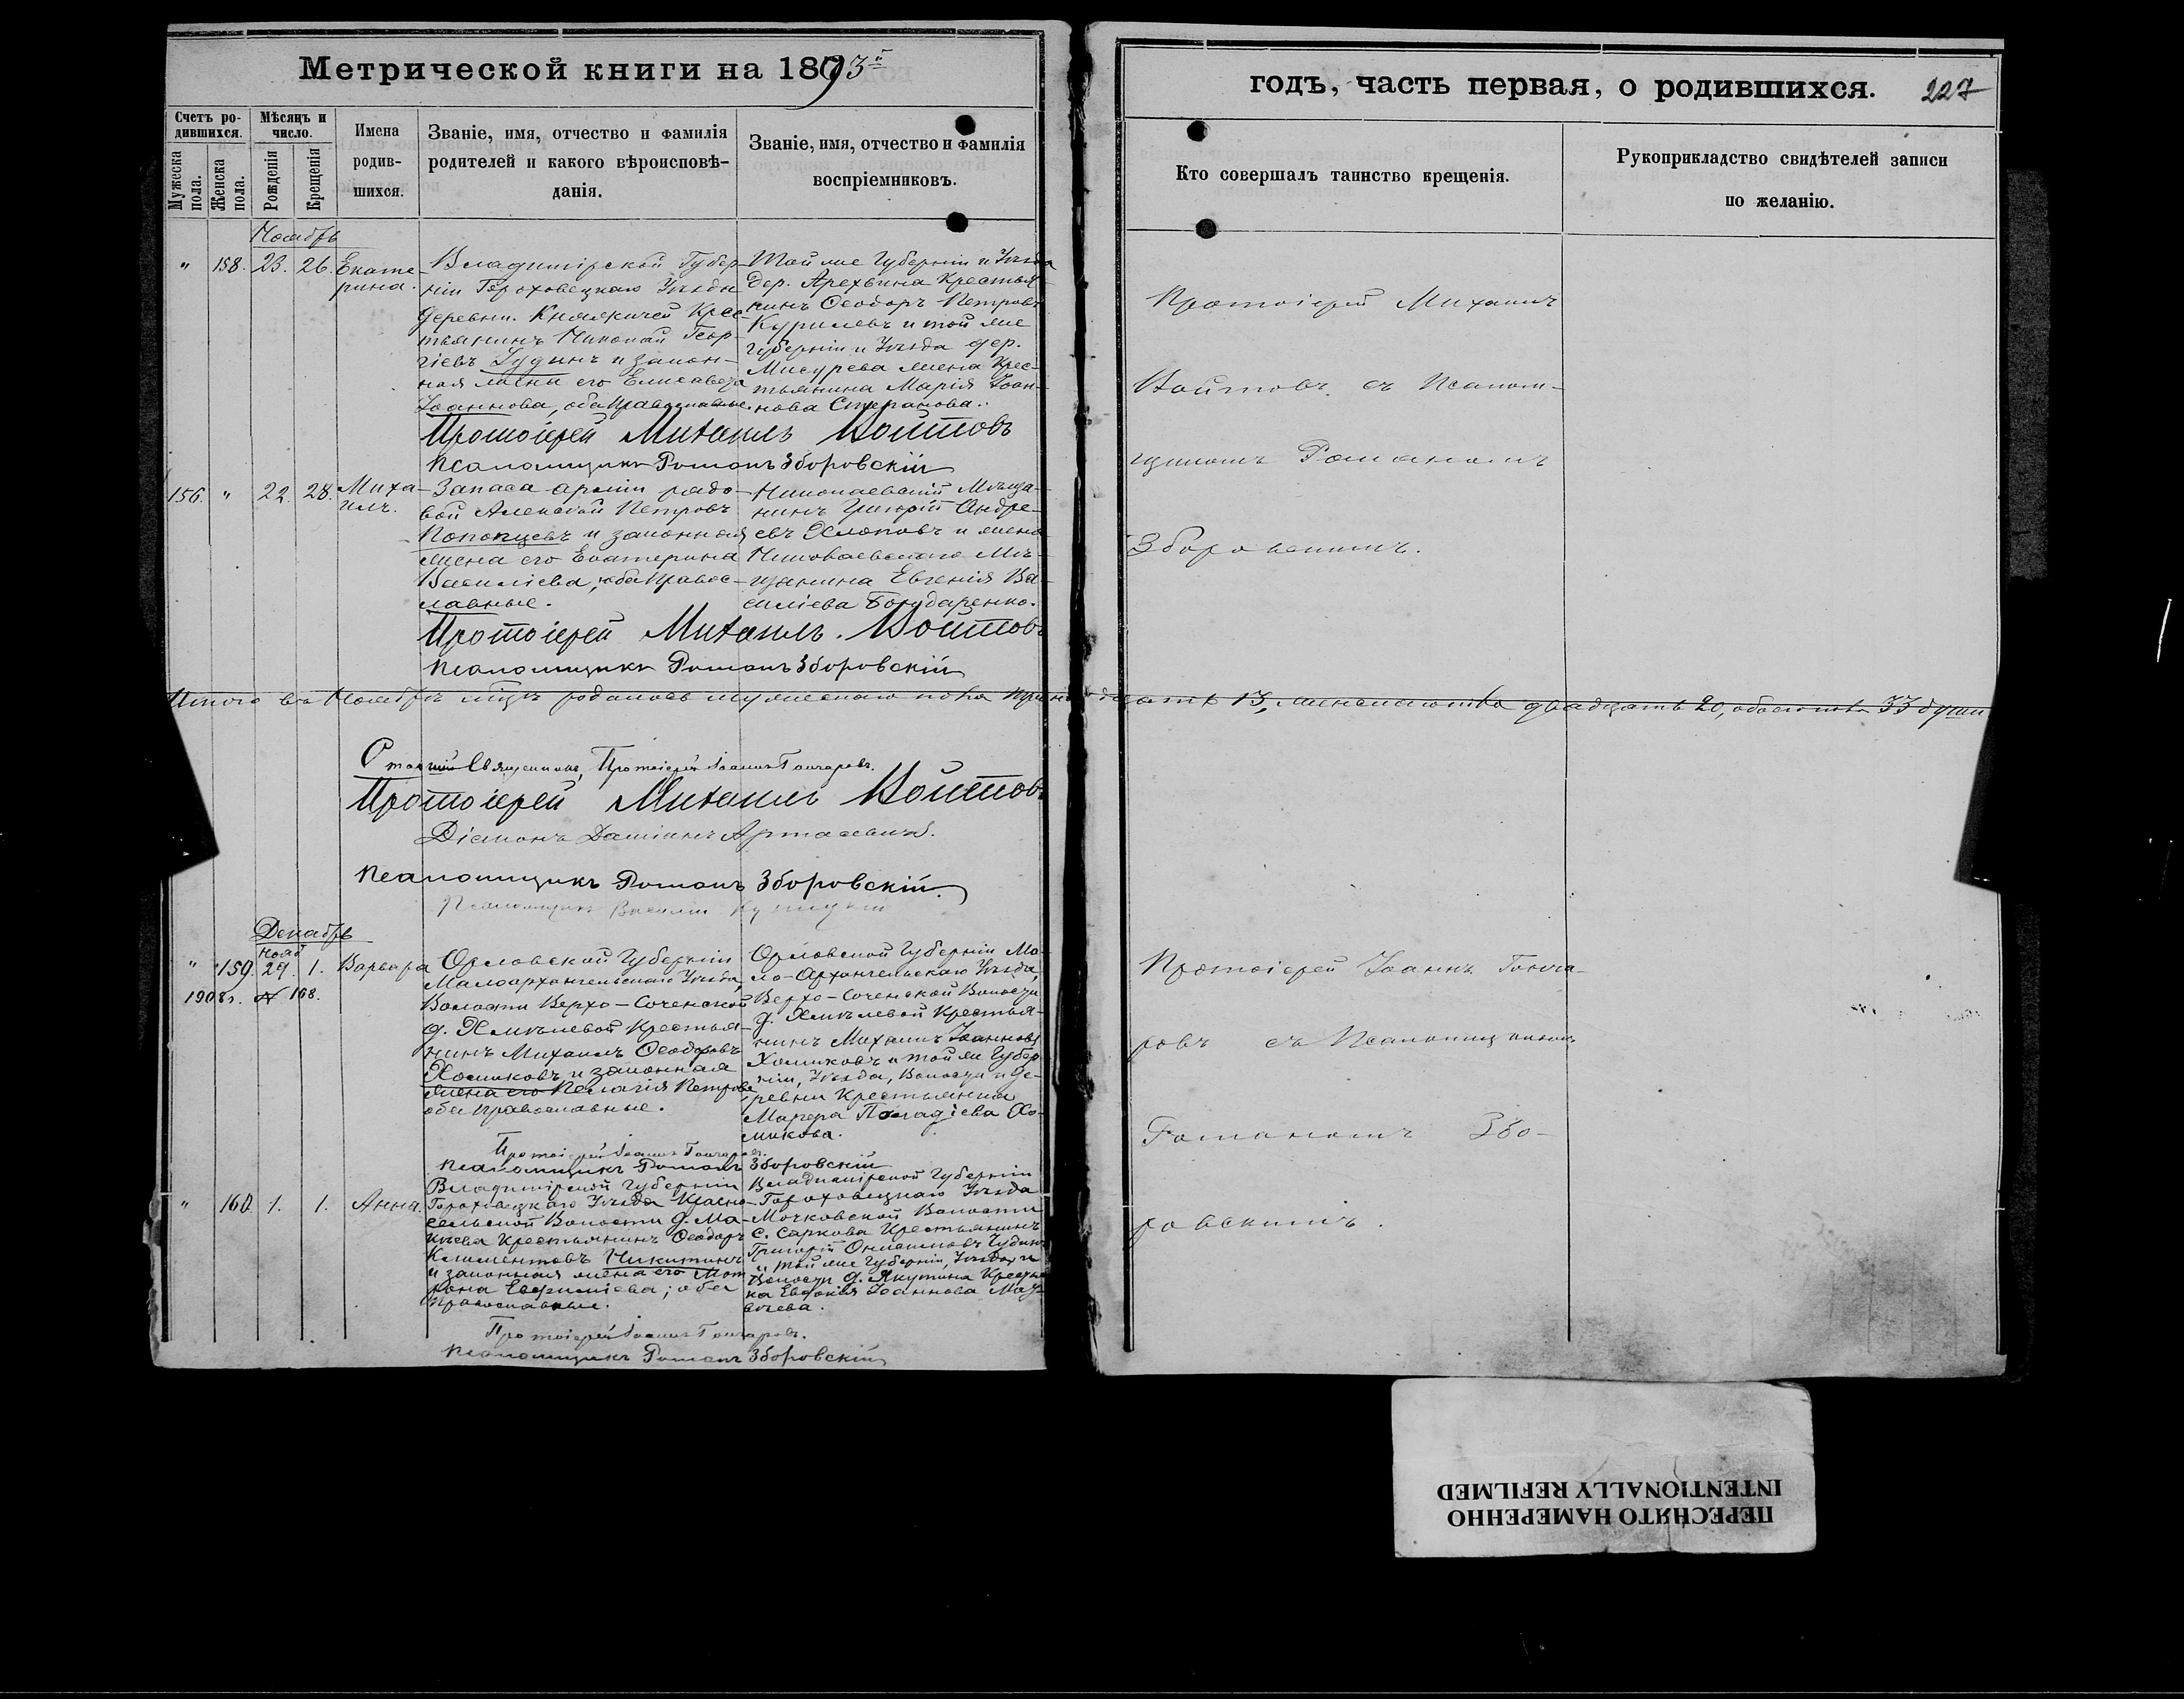 Метрической книги на 1893й
годъ, часть первая, о родившихся. 227
Счетъ ро-
дившихся.
Мужеска пола.
Женска пола.
Мѣсяцъ и
число.
Рожденія
Крещенія
Имена
родив-
шихся.
Званіе, имя, отчество и фамилія
родителей и какого вѣроисповѣ-
данія.
Званіе, имя, отчество и фамилія
воспріемниковъ.
Кто совершалъ таинство крещенія.
Рукоприкладство свидѣтелей записи
по желанію.
Ноябрь
" 158. 23. 26. Екате-
рина.
Владимірской Губер-
ніи Гороховецкаго Уѣзда
деревни Княжичей Крес-
тьянинъ Николай Геор-
гіевъ Дудинъ и закон-
ная жена его Елисавета
Іоаннова, оба Православные.
Той же Губерніи и Уѣзда
Дер. Арехвина Крестья-
нинъ Ѳеодоръ Петровъ
Курилевъ и той же
Губерніи и Уѣзда дер.
Мисурева жена Крес-
тьянина Марія Іоан-
нова Степанова.
Протоіерей Михаилъ
Войтовъ съ Псалом-
щикомъ Романомъ
Зборовскимъ.
Протоіерей Михаилъ Войтовъ
Псаломщикъ Романъ Зборовскій
156. " 22. 28. Миха-
илъ.
Запаса арміи рядо-
вой Алексѣй Петровъ
и законная
жена его Екатерина
Василіева, оба Правос-
лавные.
Николаевскій Мѣща-
нинъ Григорій Андре-
евъ Хлоповъ и жена
Николаевскаго Мѣ-
щанина Евгенія Ва-
силіева Бондаренко.
Протоіерей Михаилъ Войтовъ
Псаломщикъ Романъ Зборовскій
Итого въ Ноябрѣ мцѣ родилось мужескаго пола тринадцать 13, женскаго пола двадцать 20, обоего пола 33 души
Старшій Священникъ, Протоіерей Іоаннъ Гончаровъ.
Протоіерей Михаилъ Войтовъ
Діаконъ Даміанъ Артасевичъ.
Псаломщикъ Романъ Зборовскій.
Псаломщикъ Василій
Декабрь
" 159. Нояб 29. 1. Варвара
1908г. № 168.
Орловской Губерніи
Малоархангельскаго Уѣзда,
Волости Верхо-Соченской
д. Хмѣлевой Крестья-
нинъ Михаилъ Ѳеодоровъ
Хомяковъ и законная
жена его Пелагія Петрова
оба православные.
Орловской Губерніи Ма-
ло-Архангельскаго Уѣзда,
Верхо-Соченской Волости
д. Хмѣлевой Крестья-
нинъ Михаилъ Іоанновъ
Хомяковъ и той же Губер-
ніи, Уѣзда, Волости и де-
ревни Крестьянка
Хо-
мякова.
Протоіерей Іоаннъ Гонча-
ровъ съ Псаломщикомъ
Романомъ Збо-
ровскимъ.
Протоіерей Іоаннъ Гончаровъ.
Псаломщикъ Романъ Зборовскій
" 160. 1. 1. Анна.
Владимірской Губерніи
Гороховецкаго Уѣзда Красно-
сельской Волости д. Ма-
Крестьянинъ Ѳеодоръ
Климентовъ Никитинъ
и законная жена его Мат-
рона Евфиміева; оба
Православные.
Владимірской Губерніи
Гороховецкаго Уѣзда
Мочковской Волости
с. Саркова Крестьянинъ
Григорій Онисимовъ Чудинъ
и той же Губерніи, Уѣзда и
Волости д. Якутина Крестьян-
ка Евдокія Іоаннова
Протоіерей Іоаннъ Гончаровъ.
Псаломщикъ Романъ Зборовскій
ПЕРЕСНЯТО НАМЕРЕННО
INTENTIONALLY REFILMED